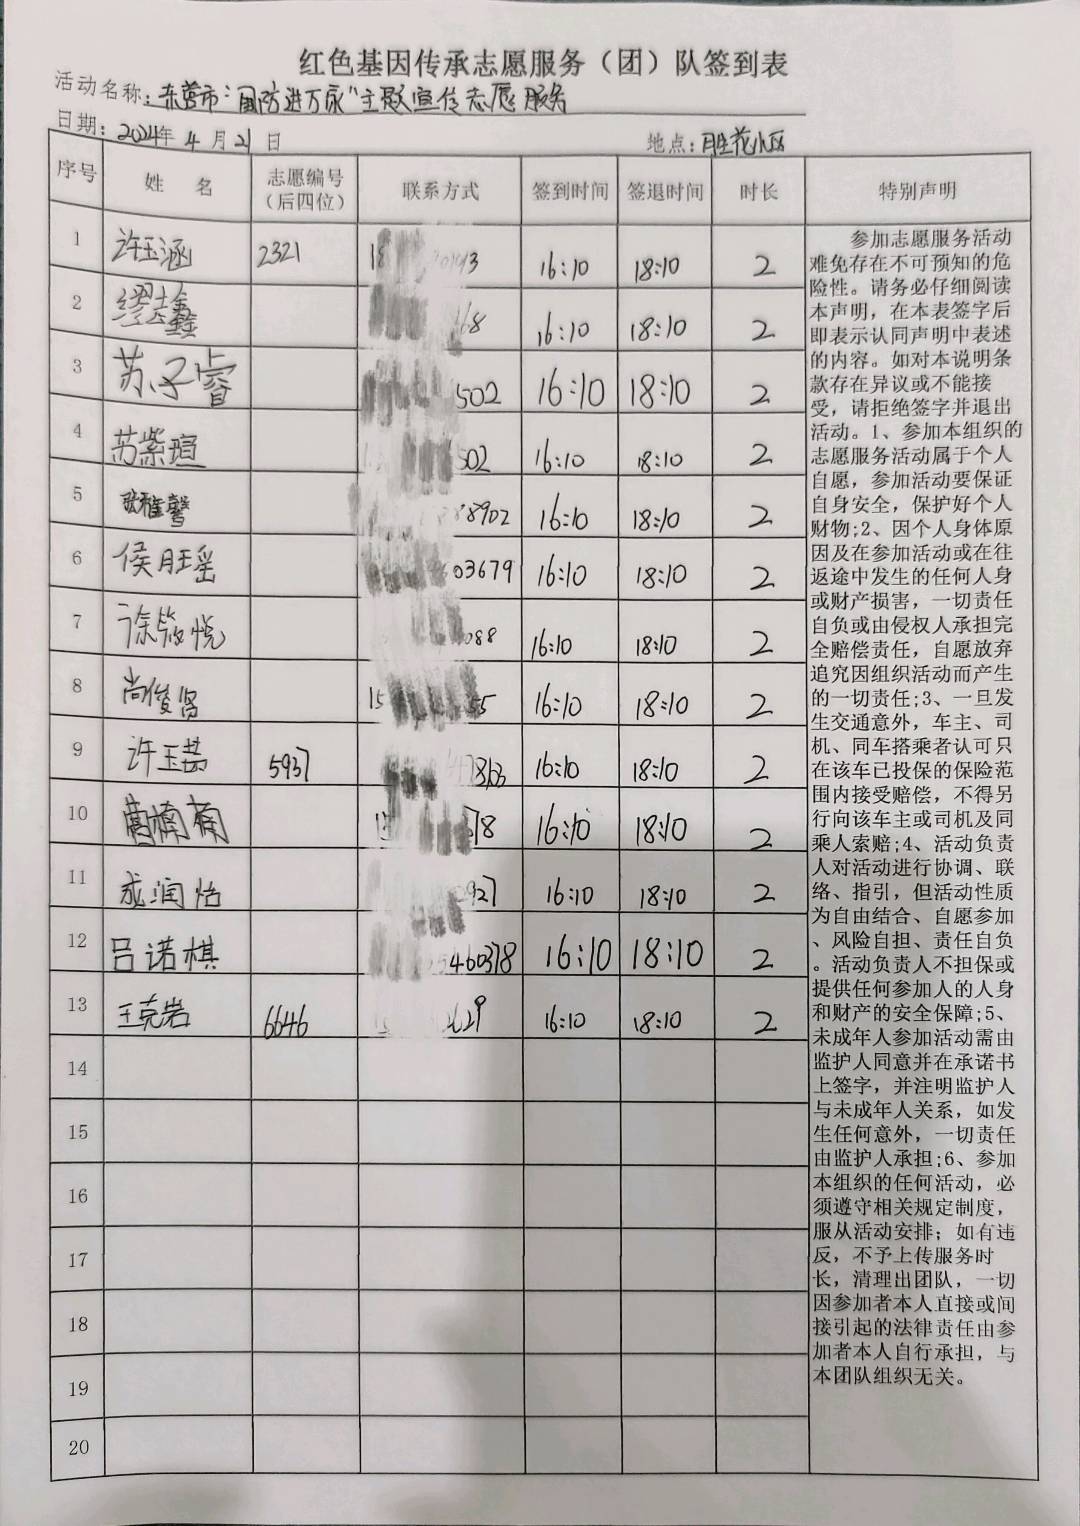 红色基因传承志愿服务（团）队签到表
活动名称：东营市“国防进万家”主题宣传志愿服务
日期：2024年 4 月 21 日 地点：胜花小区
序号 姓 名 志愿编号（后四位） 联系方式 签到时间 签退时间 时长 特别声明
1 许玉涵 2321 16:10 18:10 2
2 缪鑫 68 16:10 18:10 2
3 苏子睿 502 16:10 18:10 2
4 苏紫瑄 502 16:10 18:10 2
5 8902 16:10 18:10 2
6 侯旺瑶 03679 16:10 18:10 2
7 徐悦 088 16:10 18:10 2
8 尚俊 15 55 16:10 18:10 2
9 许玉 5937 16:10 18:10 2
10 楠楠 18 16:10 18:10 2
11 成润怡 927 16:10 18:10 2
12 吕诺棋 460378 16:10 18:10 2
13 王克岩 6646 629 16:10 18:10 2
14
15
16
17
18
19
20
参加志愿服务活动
难免存在不可预知的危
险性。请务必仔细阅读
本声明，在本表签字后
即表示认同声明中表述
的内容。如对本说明条
款存在异议或不能接
受，请拒绝签字并退出
活动。1、参加本组织的
志愿服务活动属于个人
自愿，参加活动要保证
自身安全，保护好个人
财物;2、因个人身体原
因及在参加活动或在往
返途中发生的任何人身
或财产损害，一切责任
自负或由侵权人承担完
全赔偿责任，自愿放弃
追究因组织活动而产生
的一切责任;3、一旦发
生交通意外，车主、司
机、同车搭乘者认可只
在该车已投保的保险范
围内接受赔偿，不得另
行向该车主或司机及同
乘人索赔;4、活动负责
人对活动进行协调、联
络、指引，但活动性质
为自由结合、自愿参加
、风险自担、责任自负
。活动负责人不担保或
提供任何参加人的人身
和财产的安全保障;5、
未成年人参加活动需由
监护人同意并在承诺书
上签字，并注明监护人
与未成年人关系，如发
生任何意外，一切责任
由监护人承担;6、参加
本组织的任何活动，必
须遵守相关规定制度，
服从活动安排；如有违
反，不予上传服务时
长，清理出团队，一切
因参加者本人直接或间
接引起的法律责任由参
加者本人自行承担，与
本团队组织无关。